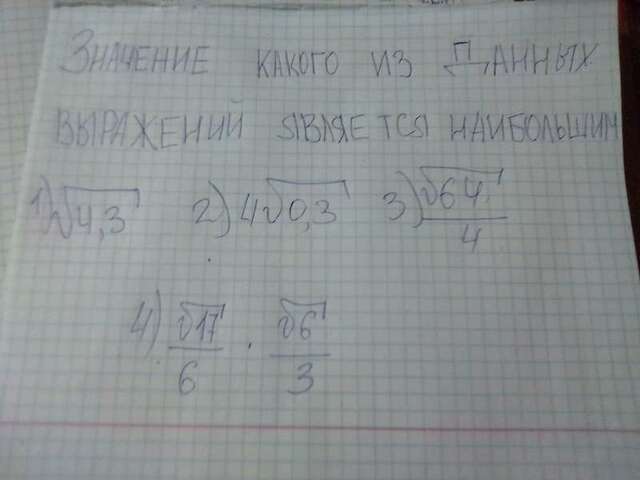 ЗНАЧЕНИЕ КАКОГО ИЗ ДАННЫХ
ВЫРАЖЕНИЙ ЯВЛЯЕТСЯ НАИБОЛЬШИМ
1) √4,3 2) 4√0,3 3) √64/4
4) √17/6 · √6/3